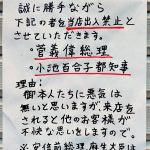 誠に勝手ながら
下記の者を当店出入禁止と
させていただきます。
・菅義偉総理
・小池百合子都知事
理由:
御本人たちに悪気は
無いと思いますが、来店を
されると他のお客様が
不快な思いをしますので。
※安倍前総理、麻生大臣は